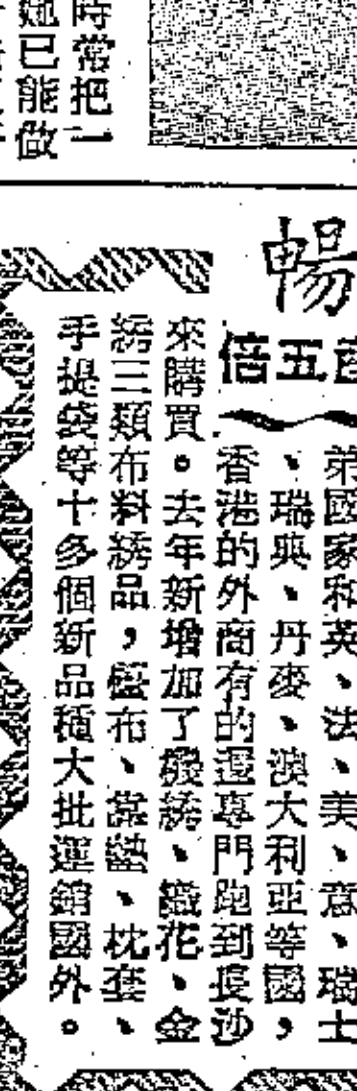 時常把一
她已能做
暢
倍五百
弟國家和英、法、美、意、瑞士
、瑞典、丹麥、澳大利亞等國，
香港的外商有的還專門跑到長沙
來購買。去年新增加了
三類布料綉品，
手提袋等十多個新品種大批運銷國外。